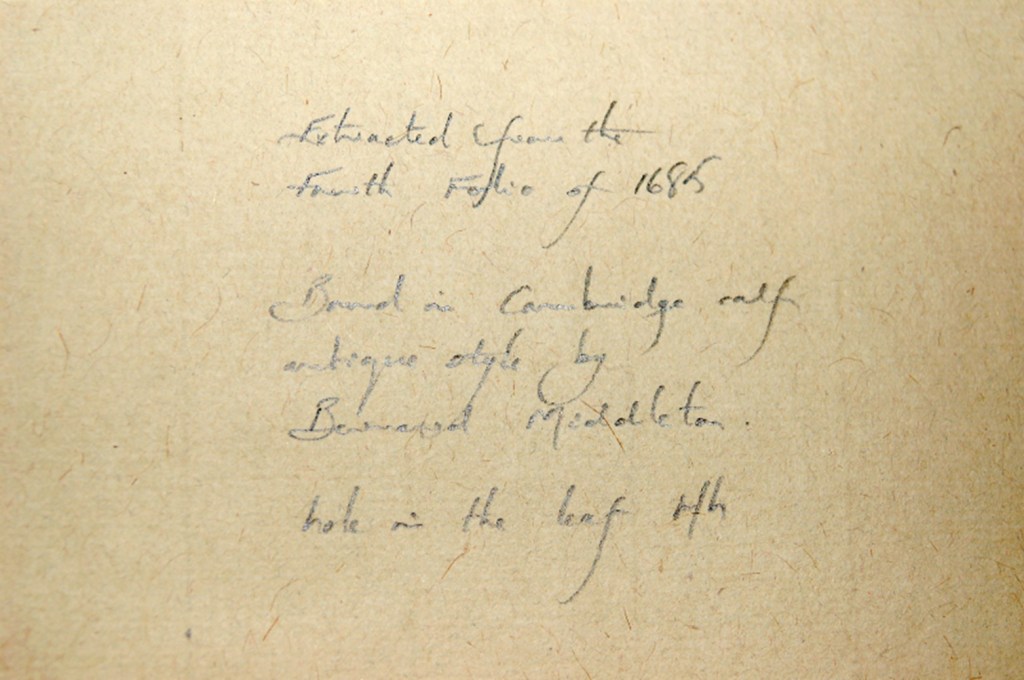 Extracted from the
Fourth Folio of 1685
Bound in Cambridge calf
antique style by
Bernard Middleton.
hole in the leaf